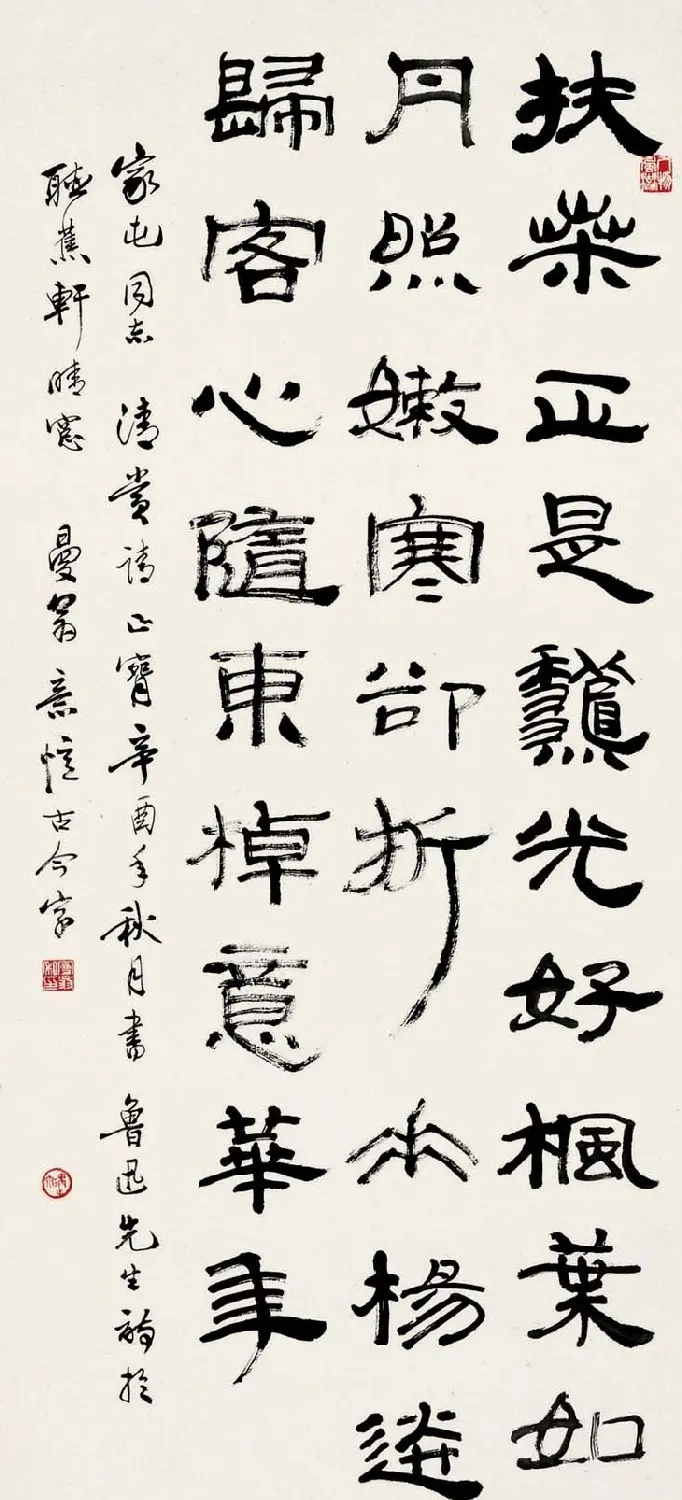 扶桒正是龝光好楓葉如
丹照嫩寒卻折垂楊送
歸客心隨東棹意華年
家屯同志 清賞請正 辛酉年秋月書 魯迅先生詩於
聽蕉軒晴窗 曼翁 古今字